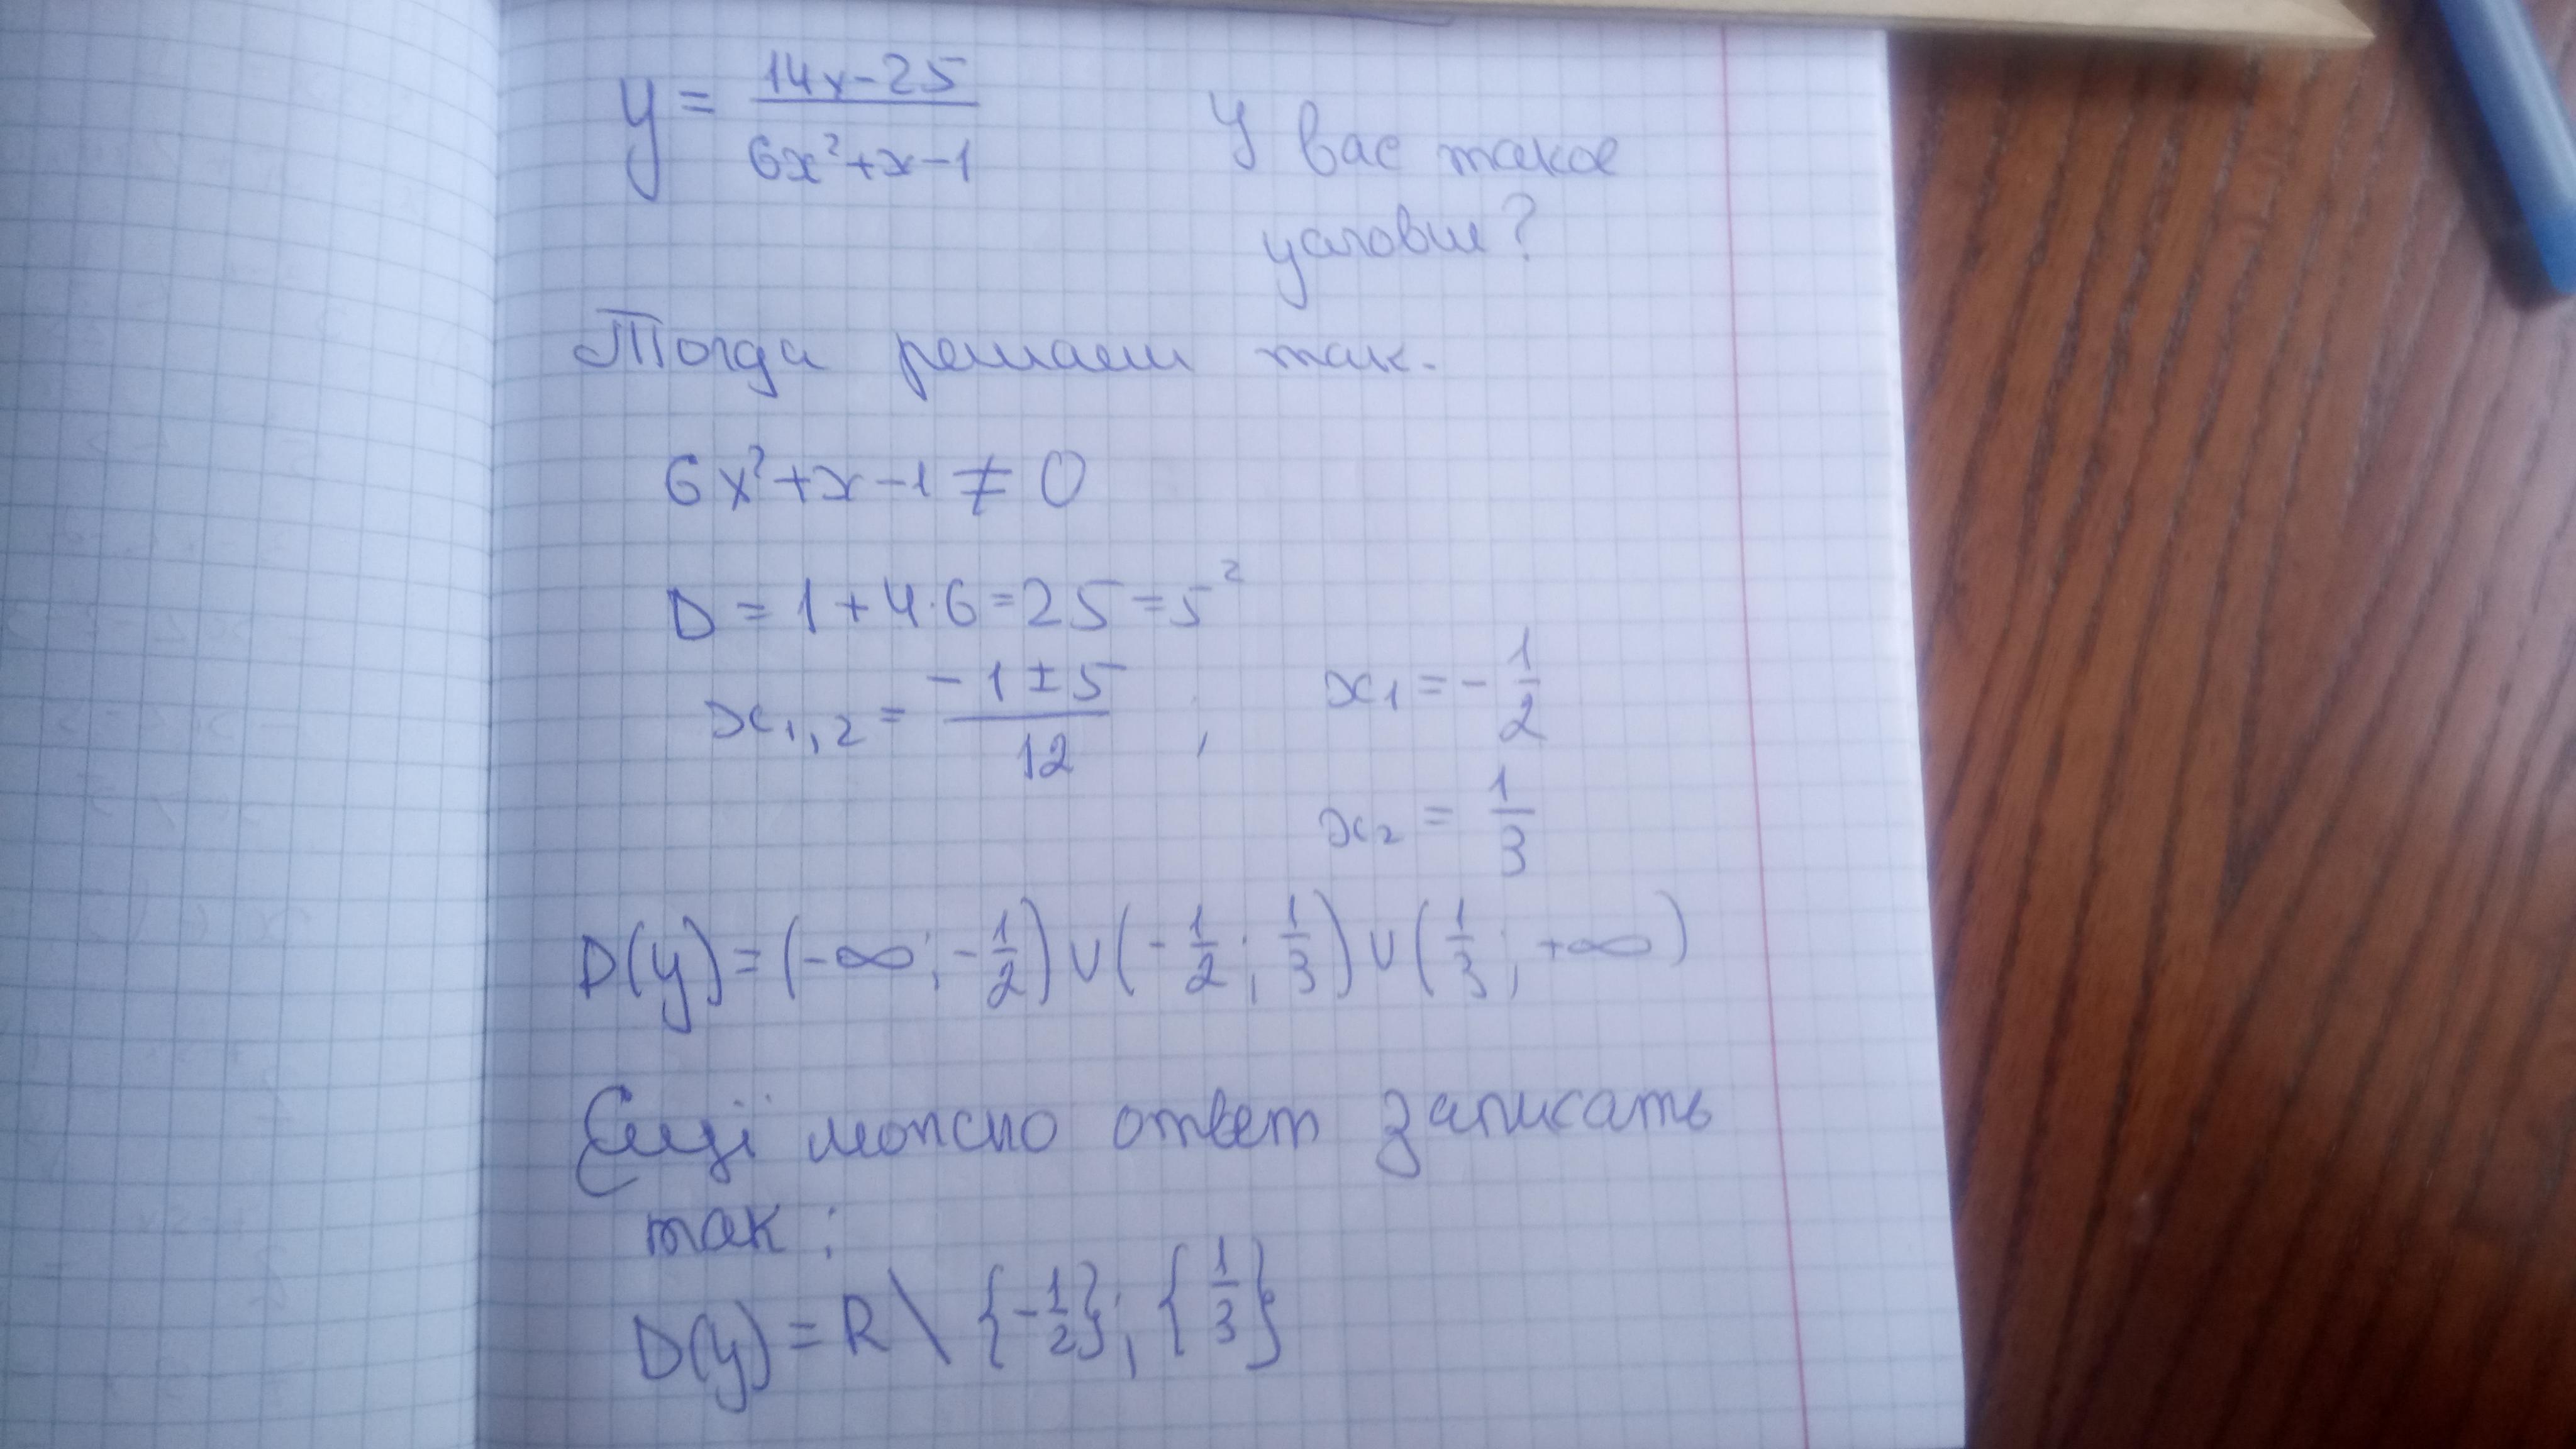 y = 14x-25 / 6x²+x-1
У вас такое
условие?
Тогда решаем так.
6x²+x-1 ≠ 0
D = 1+4·6=25=5²
x₁,₂ = -1±5 / 12 , x₁ = -1/2
x₂ = 1/3
D(y) = (-∞; -1/2) ∪ (-1/2; 1/3) ∪ (1/3; +∞)
Ещё можно ответ записать
так:
D(y) = R \ {-1/2}; {1/3}